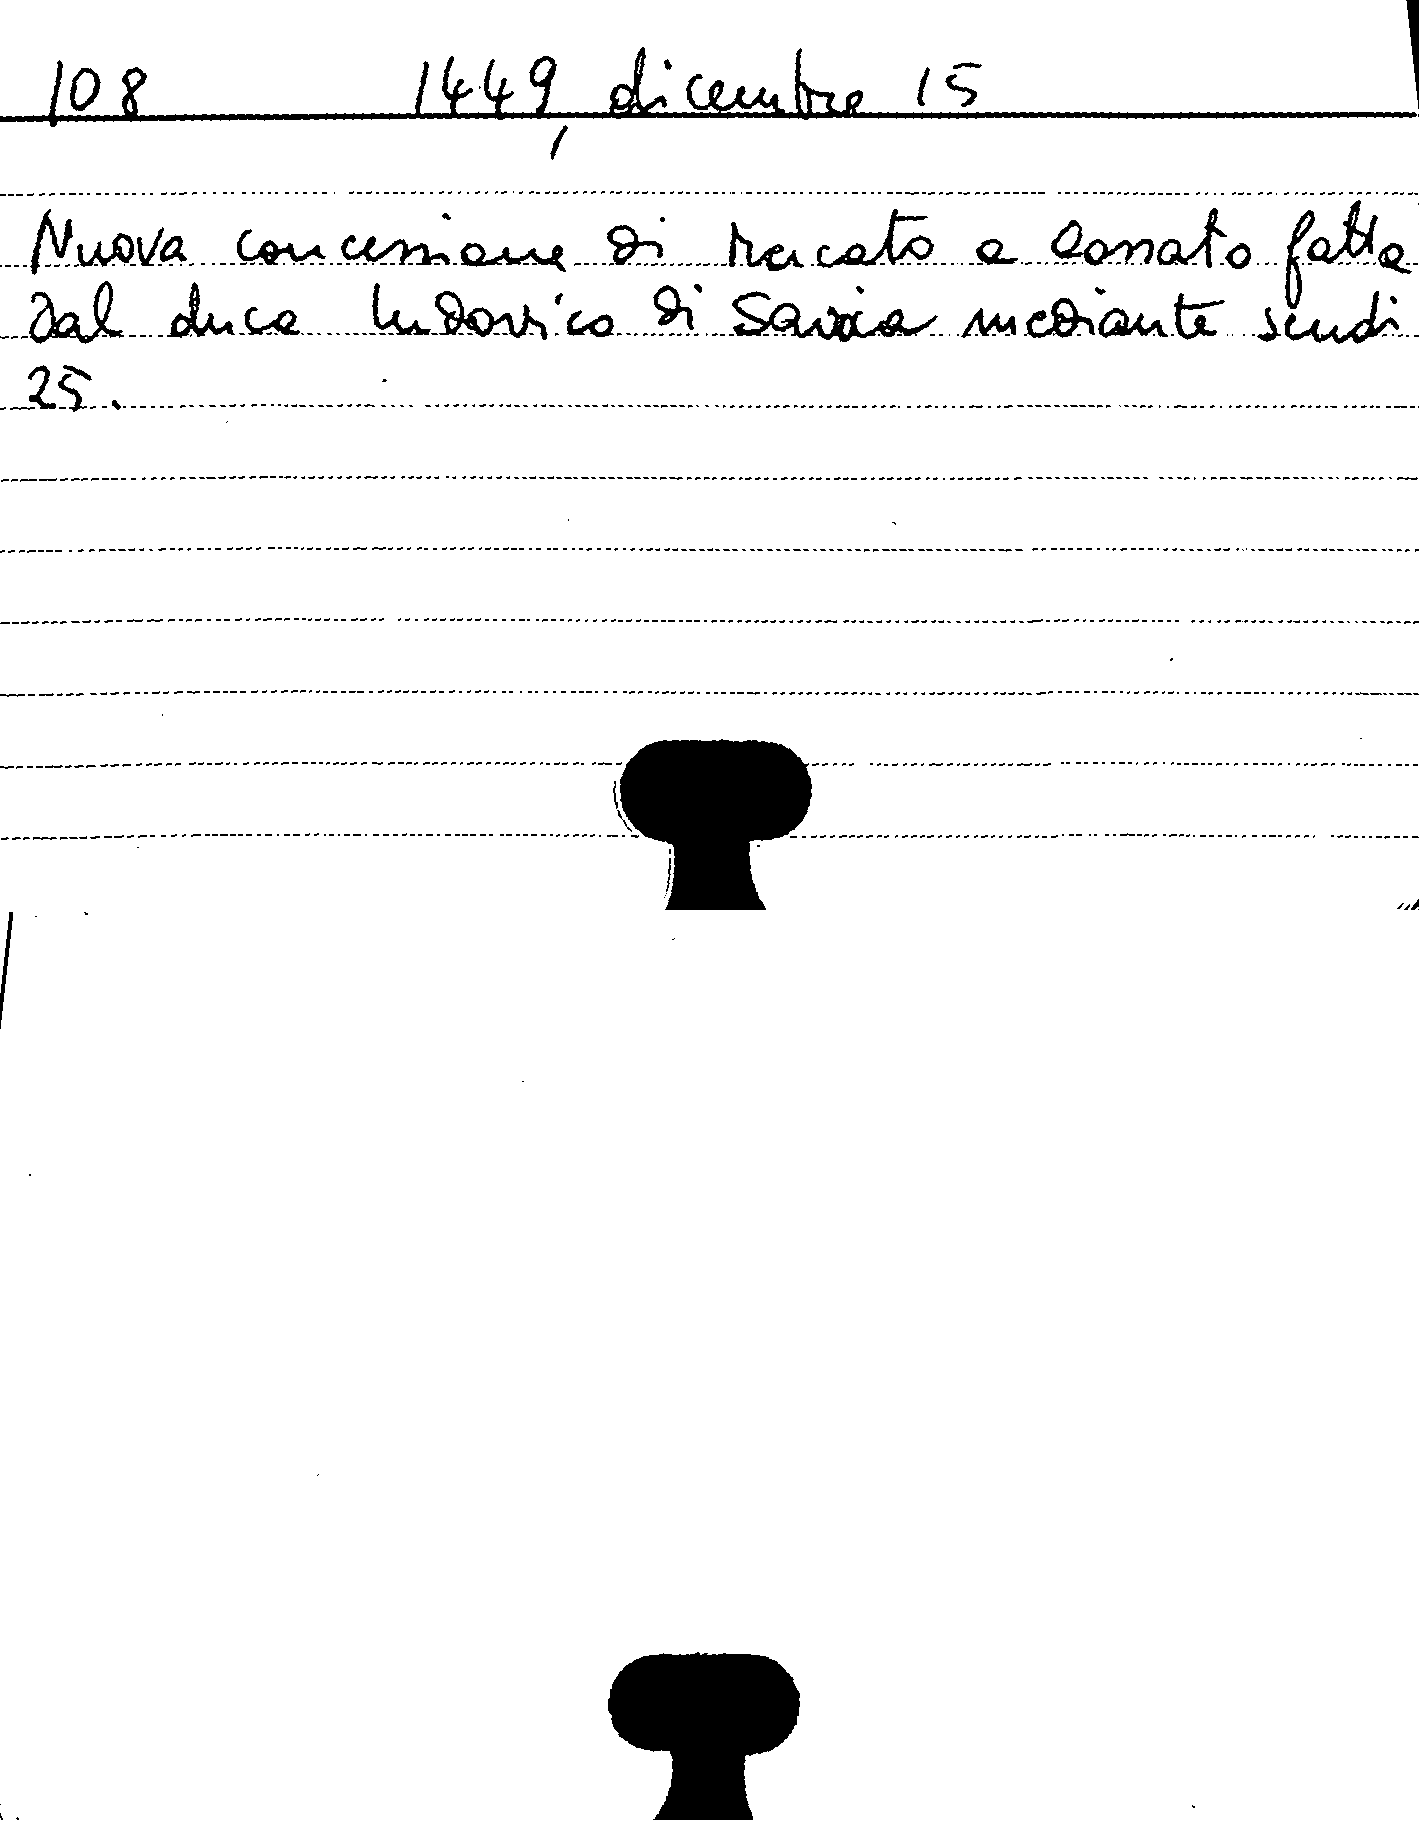 108 1449, dicembre 15
Nuova concessione di mercato a Cossato fatta
dal duca Ludovico di Savoia mediante scudi
25.